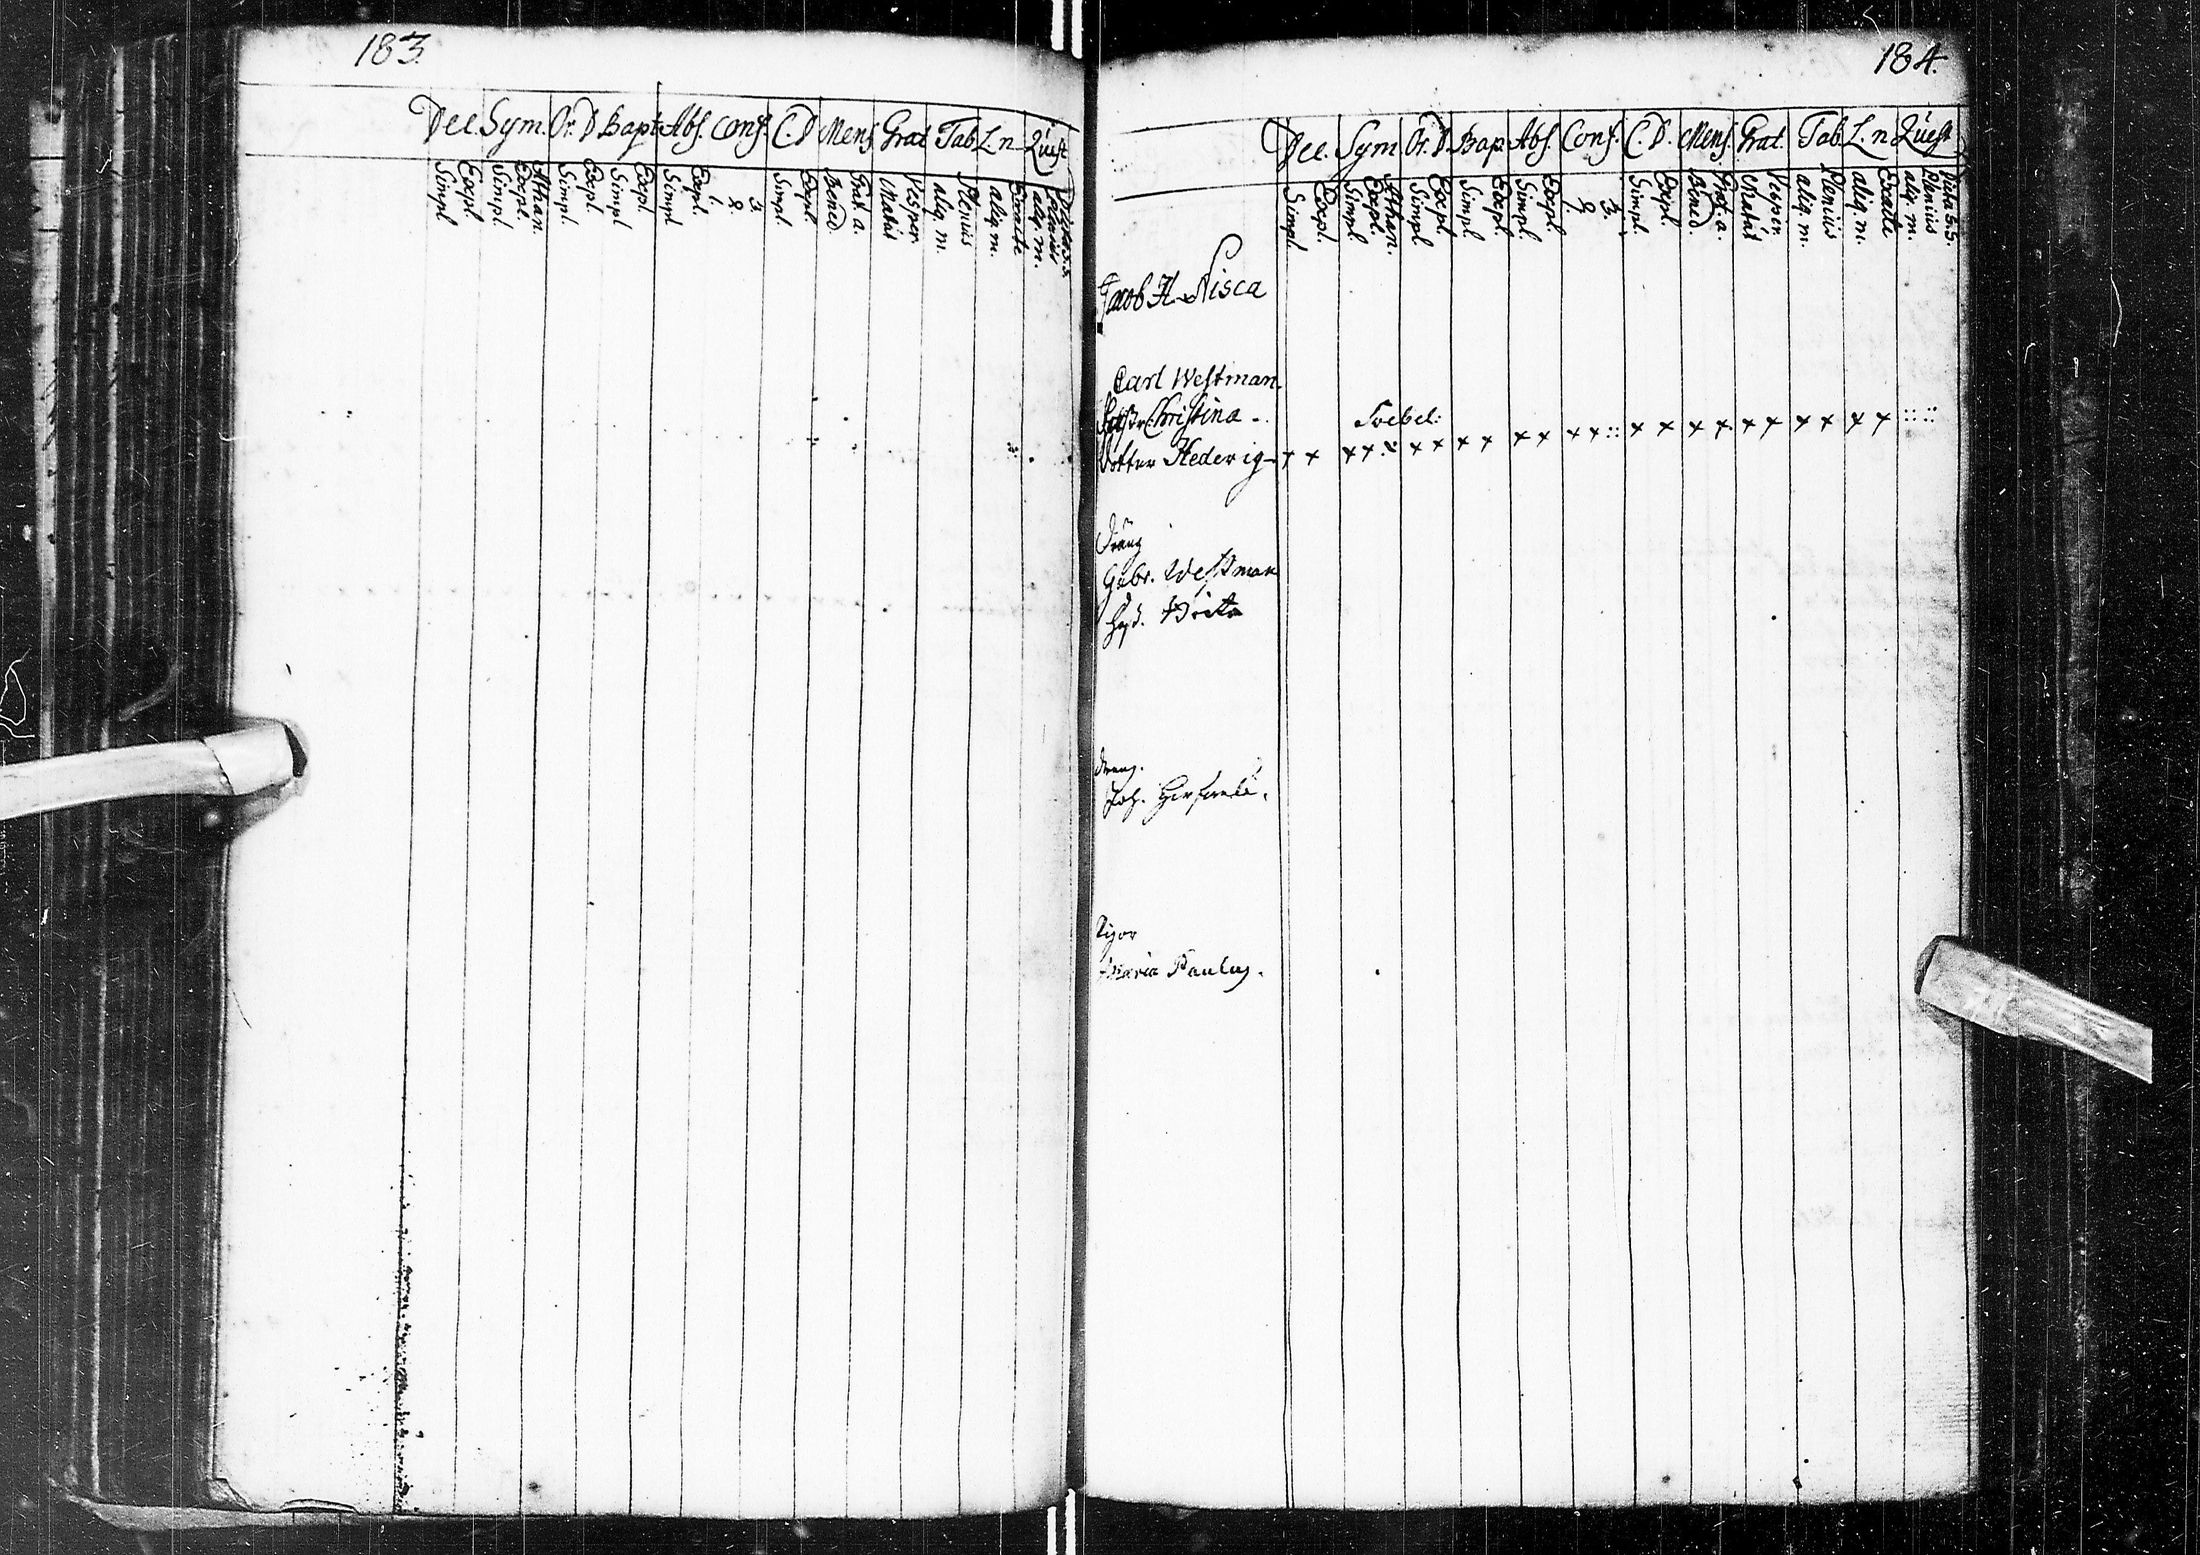 183.
Dec. Sym. Or. D Bapt Abs. Conf. C. D Mens. Grat Tab L. n Quest
Simpl Expl. Simpl. Expl. Athan. Simpl. Expl. Simpl Expl. Simpl Expl. 1. 2. 3. Simpl. Expl. Bened. Grat. a. Matut. Vesper aliq. m. Plenius aliq. m. Exacte aliq. m. Plenius
184.
Dec. Sym Or. D. Bap. Abs. Conf. C. D. Mens. Grat. Tab. L. n Quest
Simpl. Expl. Simpl. Expl. Athan. Simpl. Expl. Simpl. Expl. Simpl. Expl. 1. 2. 3. Simpl. Expl. Bened. Grat. a. Matut Vesper. aliq. m. Plenius aliq. m. Exacte aliq. m. Plenius Dicta S. S.
Jacob H. Nisca
Carl Westman.
Christina -
Dotter Hedevig - x x x x x x x x x x x x :: x x x x x x x x x x :: ::
Dräng
Gabr. Westman
Hust. Brita
Dreng.
Joh.
Pigor
Maria Paulus.